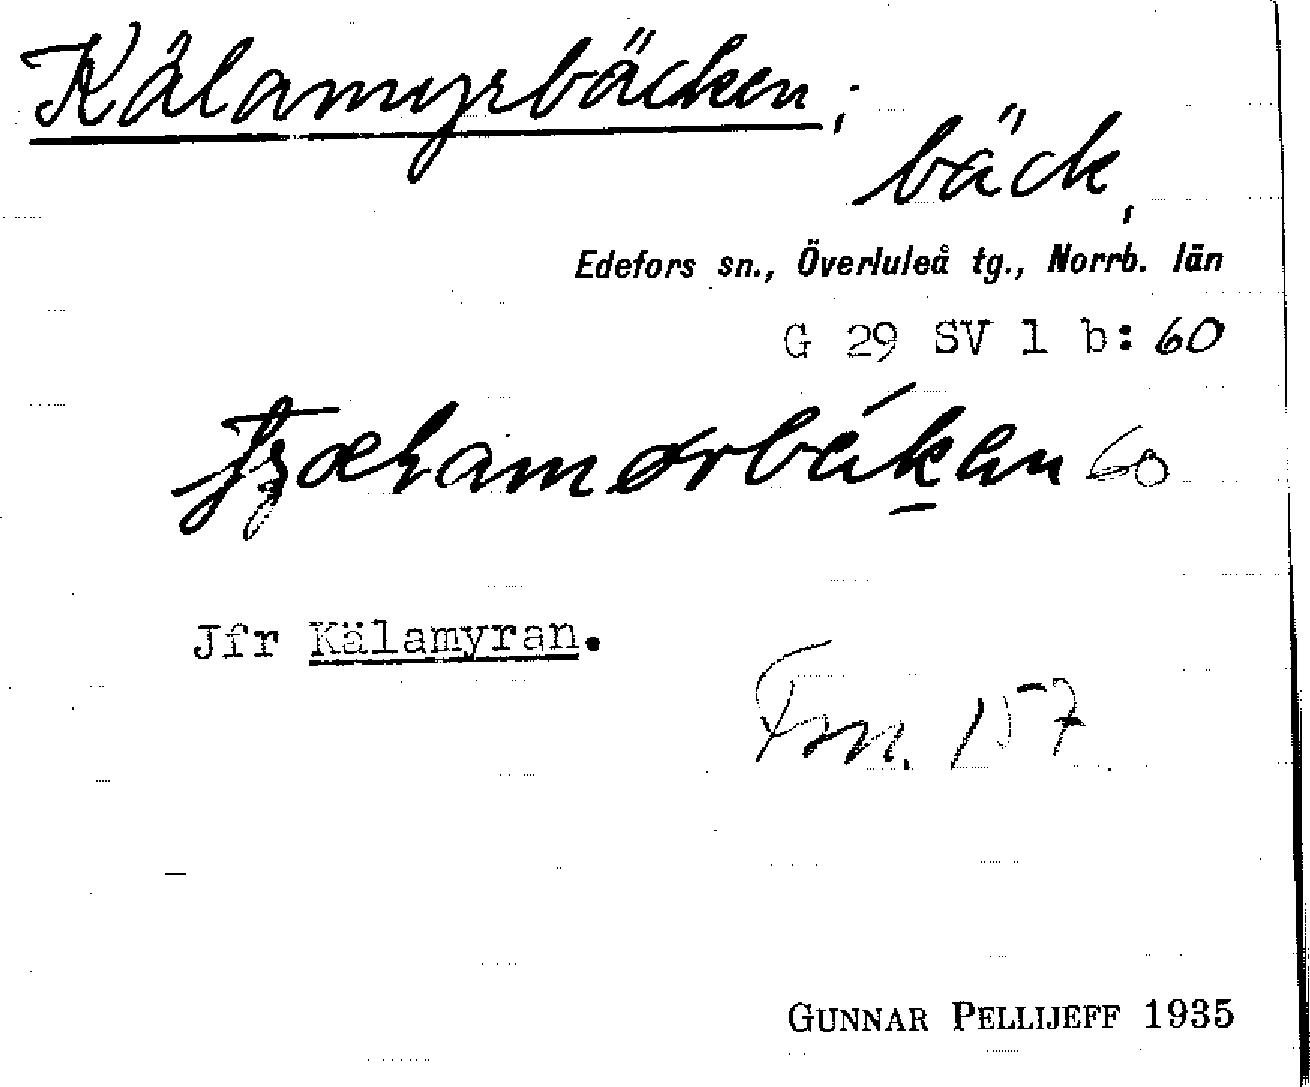 Kälamyrbäcken;
bäck,
Edefors sn., Överluleå tg., Norrb. län
G 29 SV 1 b: 60
60
Jfr Kälamyran.
Fnn. 157
GUNNAR PELLIJEFF 1935